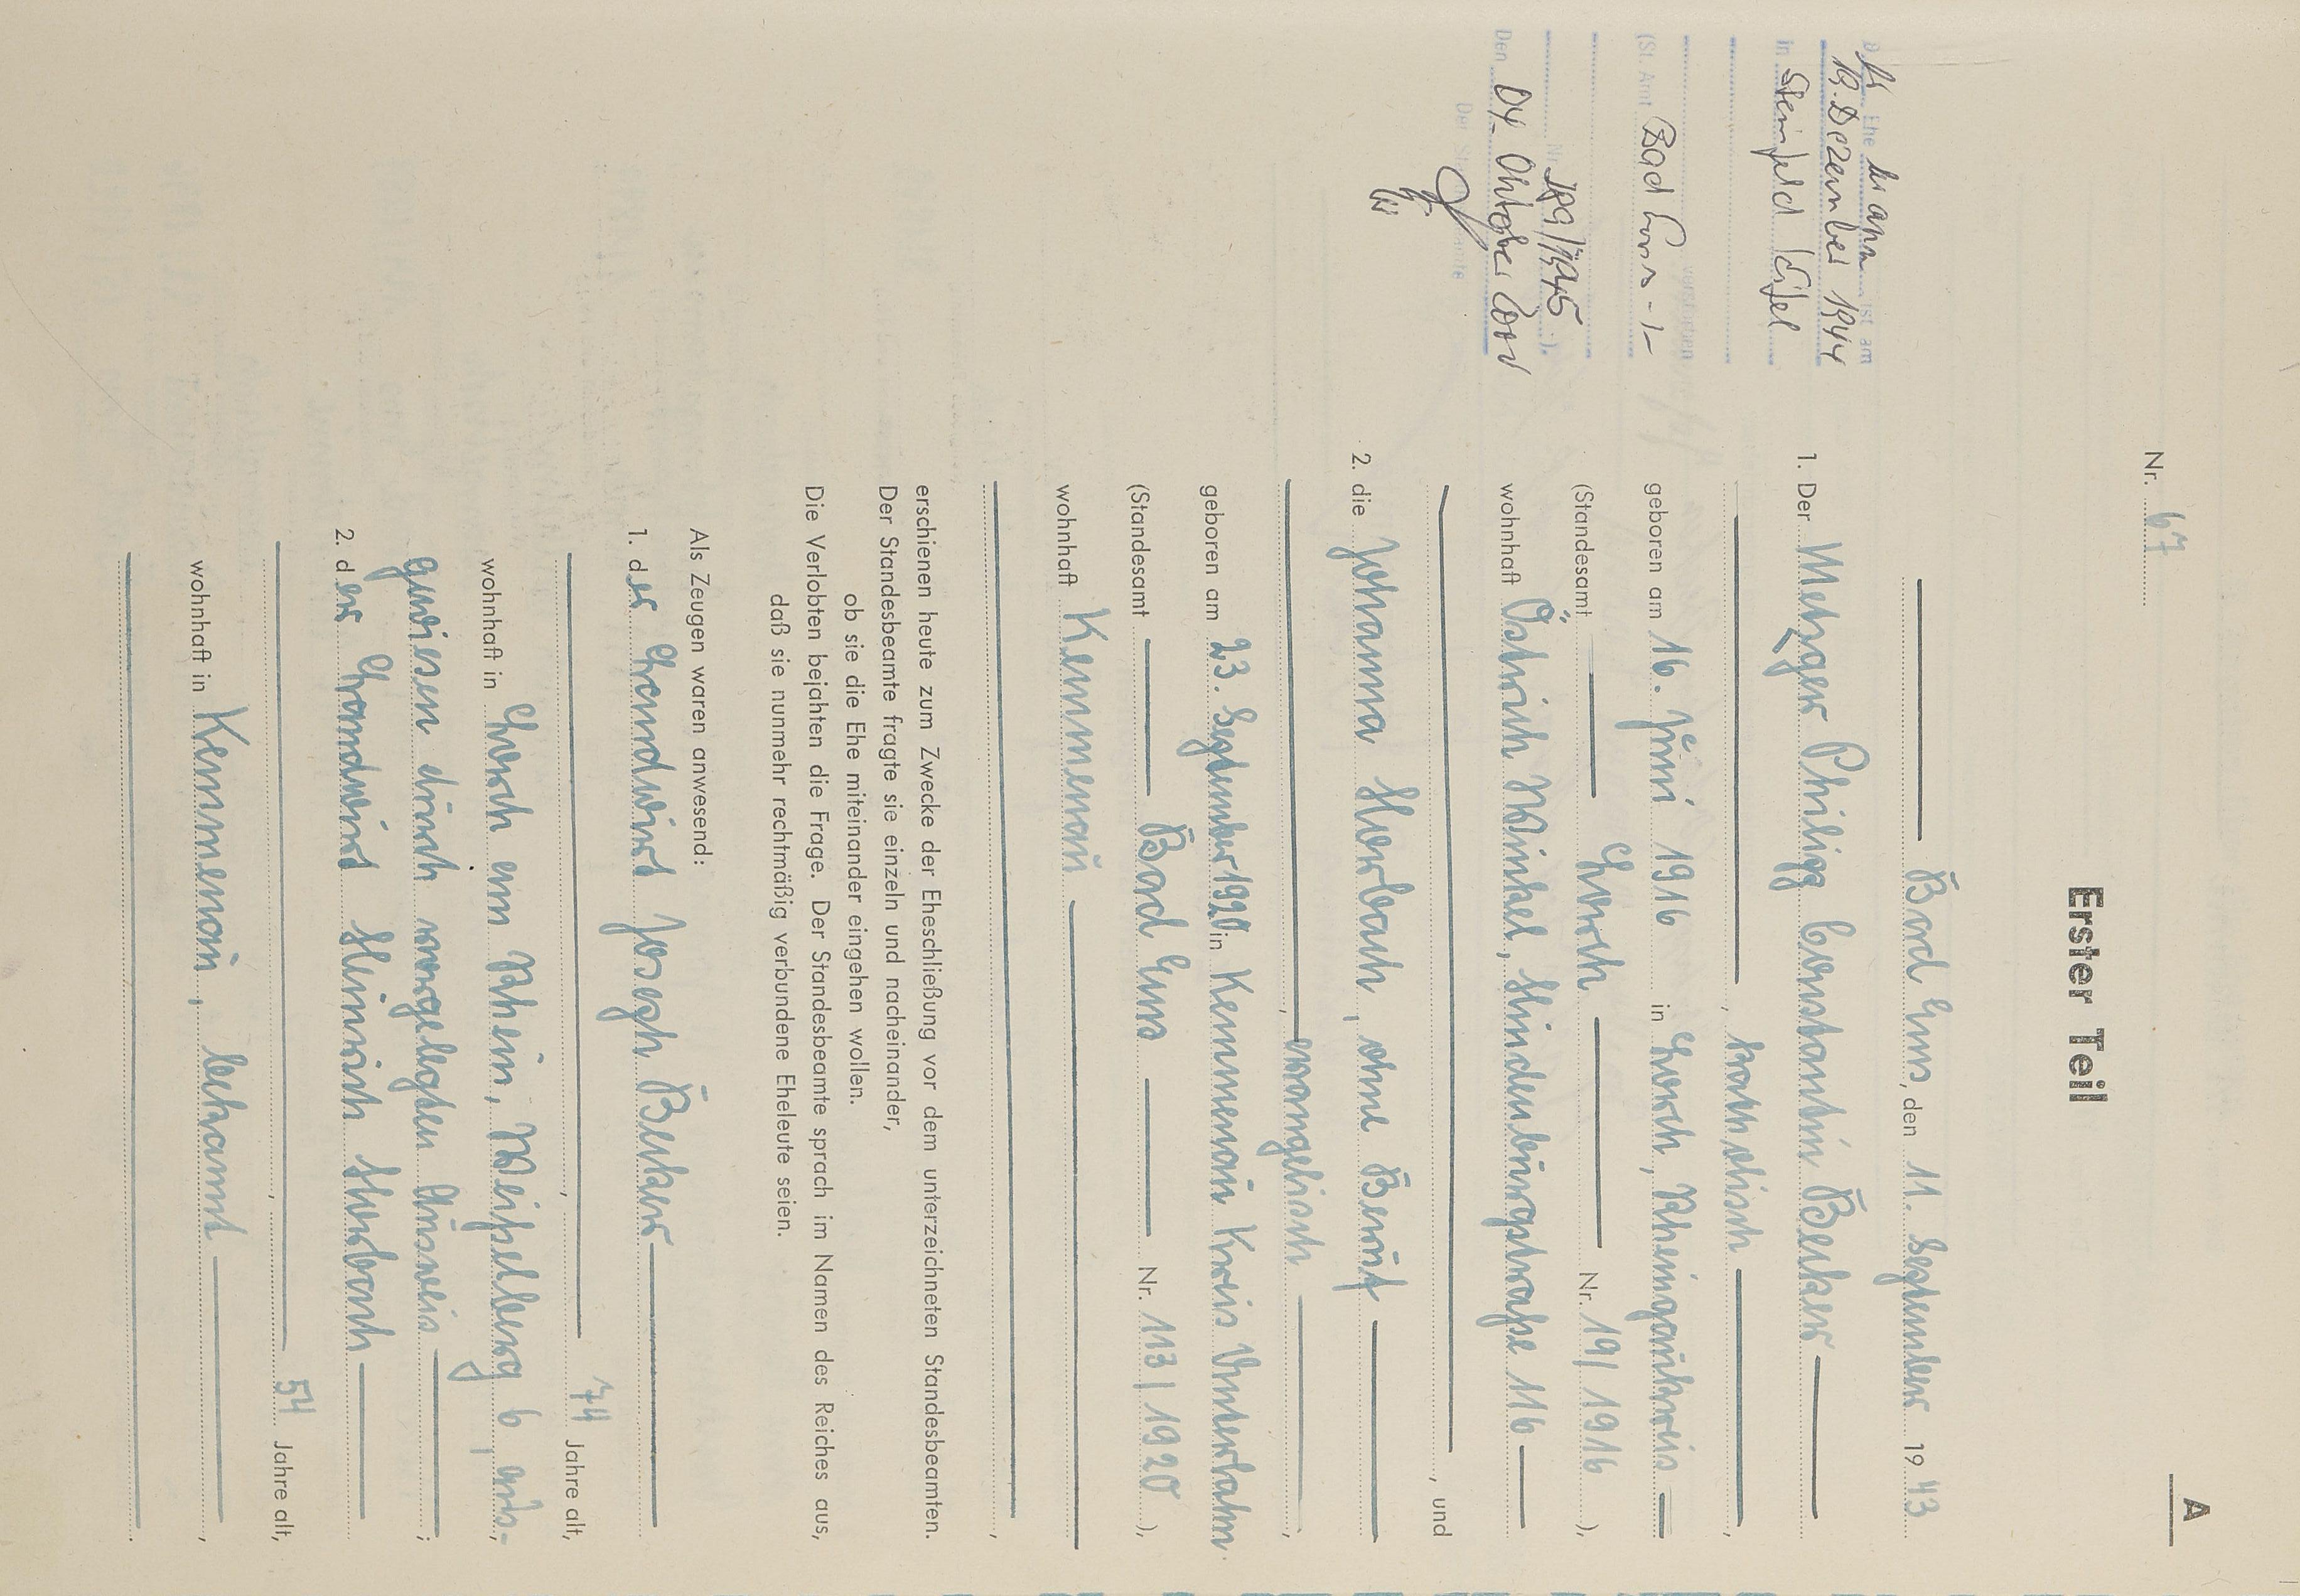 A
Nr. 67
Erster Teil
Bad Ems, den 11. September 1943
1. Der Metzger Philipp Constantin Becker
, katholisch ,
geboren am 16. Juni 1916 in Lorch, Rheingaukreis
(Standesamt Lorch Nr. 19/1916 ),
wohnhaft Östrich Winkel, Hindenburgstraße 116
, und
2. die Johanna Herbach, ohne Beruf
, evangelisch ,
geboren am 23. September 1920 in Kemmenau Kreis Unterlahn
(Standesamt Bad Ems Nr. 113/1920 ),
wohnhaft Kemmenau
,
erschienen heute zum Zwecke der Eheschließung vor dem unterzeichneten Standesbeamten.
Der Standesbeamte fragte sie einzeln und nacheinander,
ob sie die Ehe miteinander eingehen wollen.
Die Verlobten bejahten die Frage. Der Standesbeamte sprach im Namen des Reiches aus,
daß sie nunmehr rechtmäßig verbundene Eheleute seien.
Als Zeugen waren anwesend:
1. der Landwirt Joseph Becker
, 74 Jahre alt,
wohnhaft in Lorch am Rhein, Weiselberg 6, aus-
gewiesen durch vorgelegten Ausweis ;
2. der Landwirt Heinrich Herbach
, 54 Jahre alt,
wohnhaft in Kemmenau, bekannt ,
.
Ehemann ist am
19. Dezember 1944
in Steinfeld Eifel
verstorben
(St. Amt Bad Ems -/-
Nr. 189/1945 ).
Den 04. Oktober
Der Standesbeamte